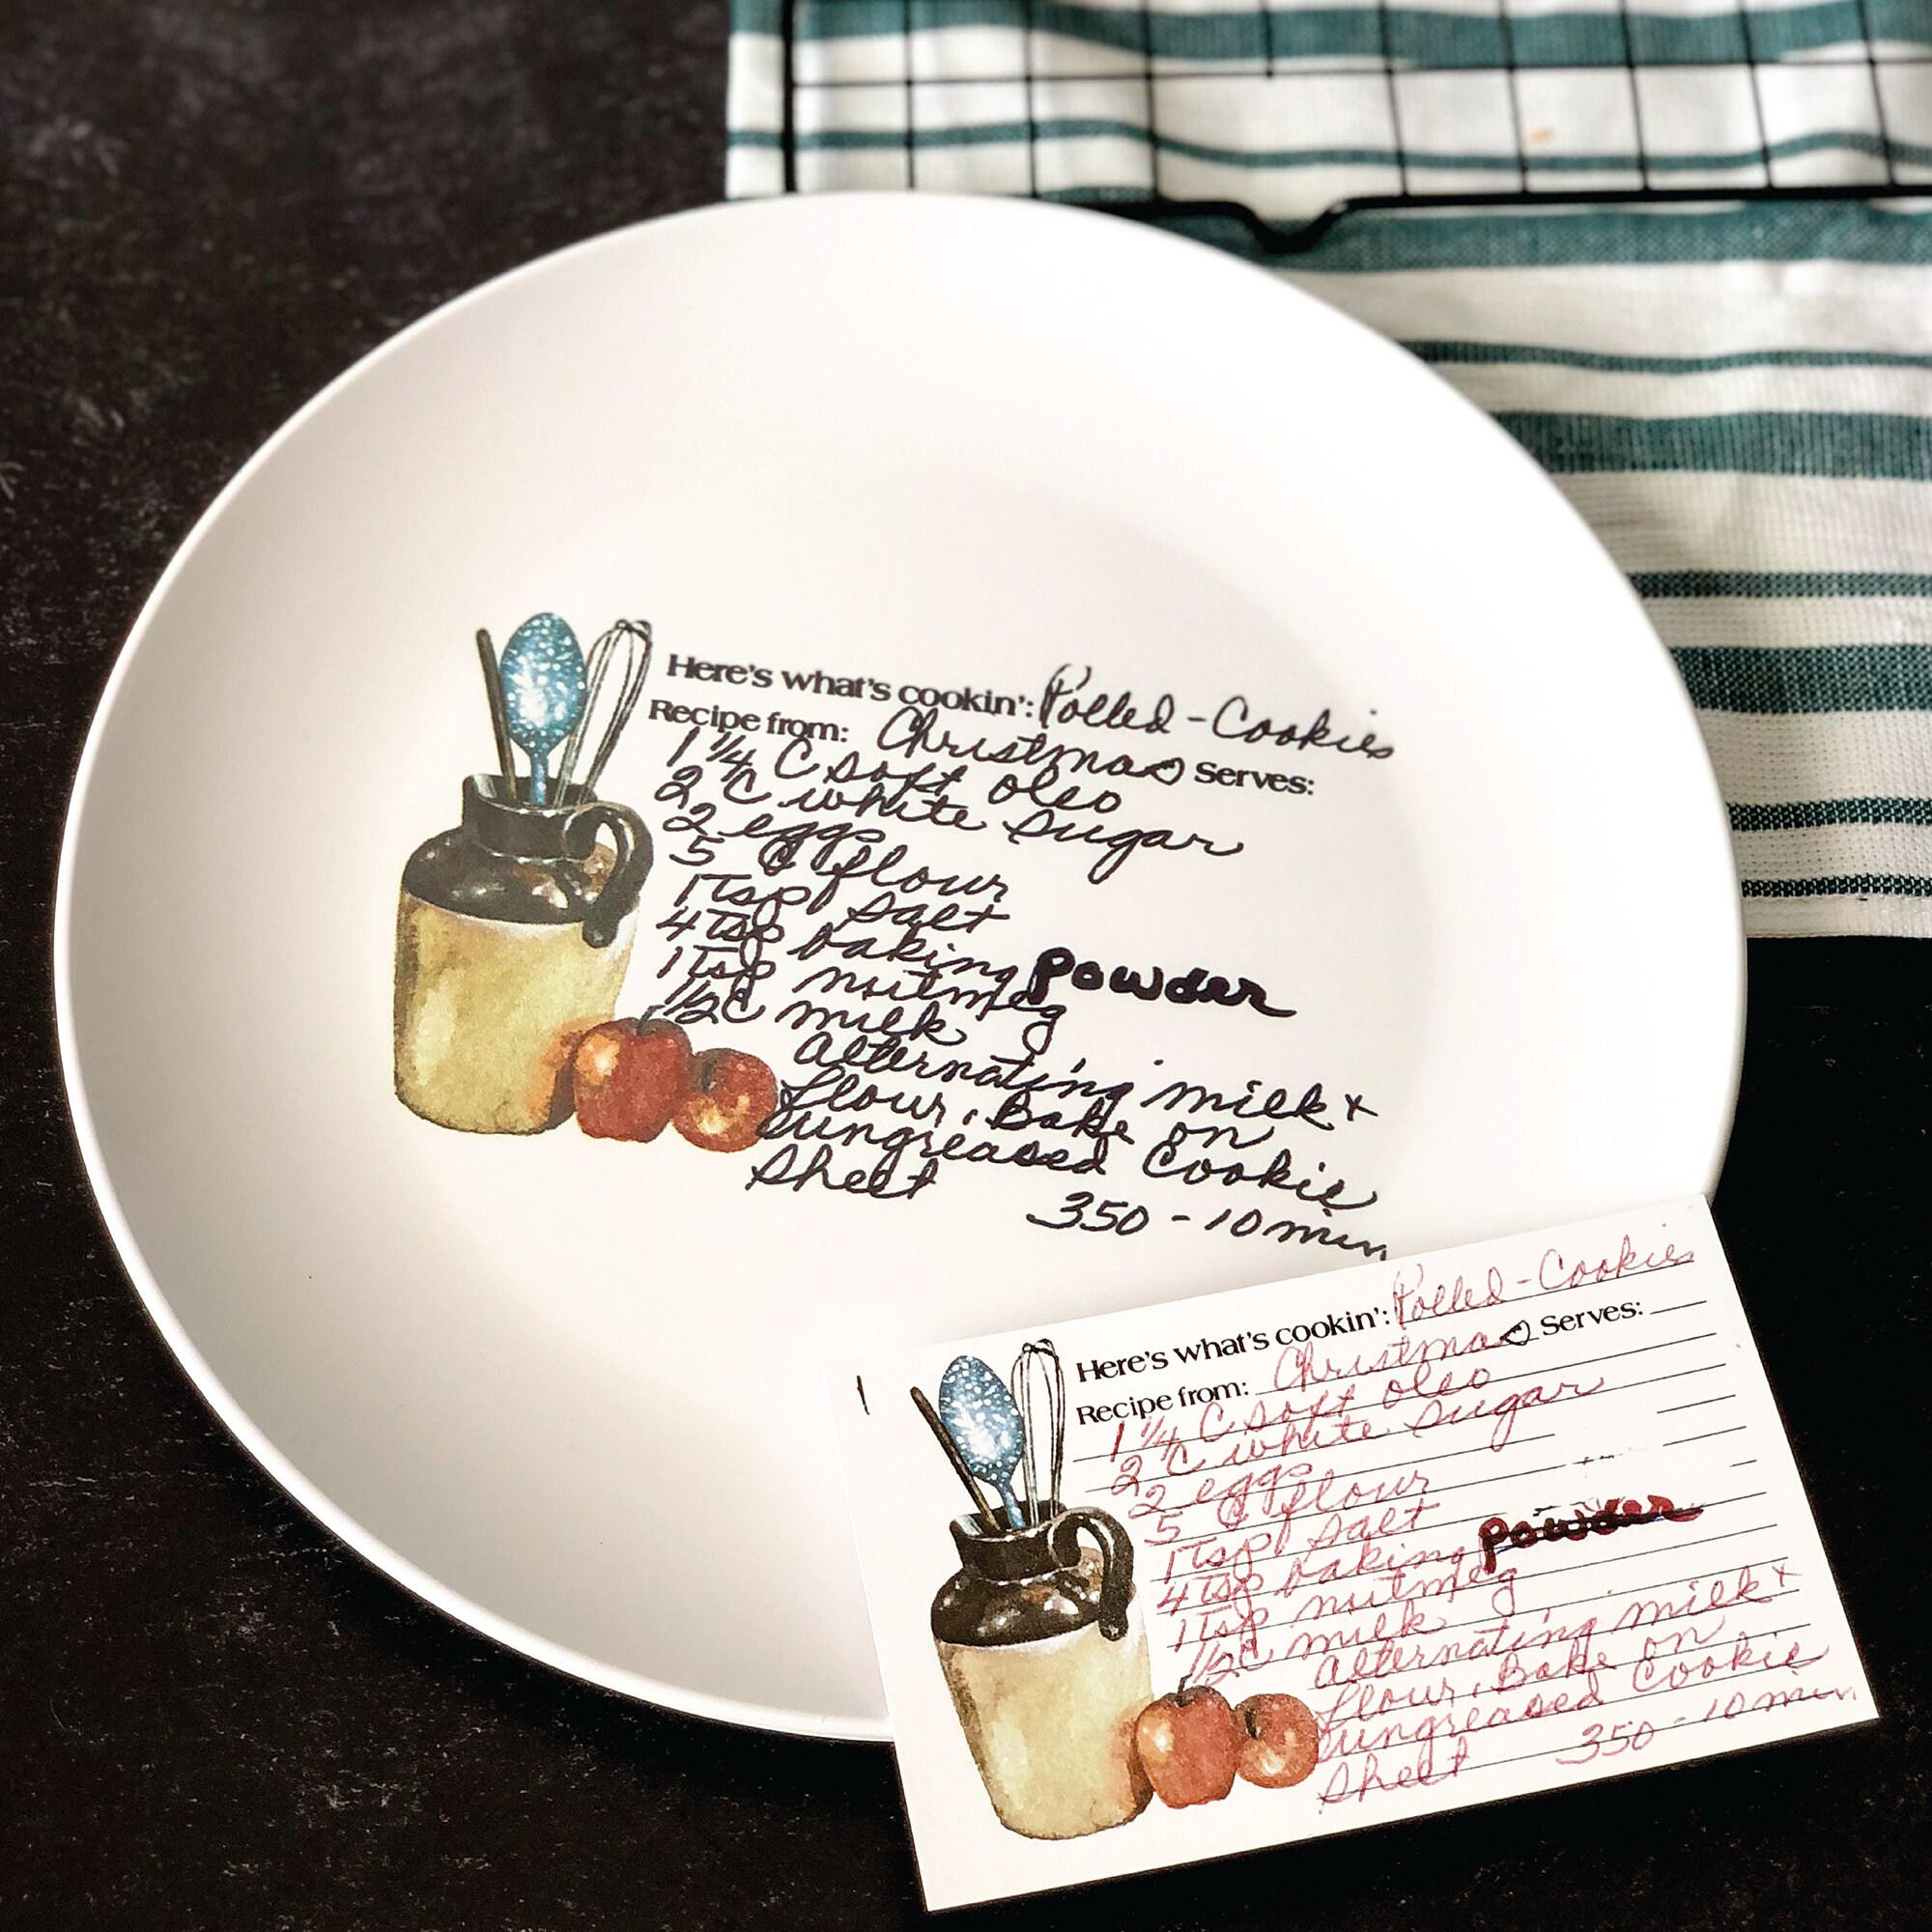 Here's what's cookin': Rolled - Cookies
Recipe from: Christmas Serves:
1 1/4 C soft oleo
2 C white sugar
2 eggs
5 C flour
1 tsp salt
4 tsp baking powder
1 tsp nutmeg
1/2 C milk
alternating milk +
flour. Bake on
ungreased Cookie
sheet 350 - 10 min
Here's what's cookin': Rolled - Cookies
Recipe from: Christmas Serves:
1 1/4 C soft oleo
2 C white sugar
2 eggs
5 C flour
1 tsp salt
4 tsp baking powder
1 tsp nutmeg
1/2 C milk
alternating milk +
flour. Bake on
ungreased Cookie
sheet 350 - 10 min